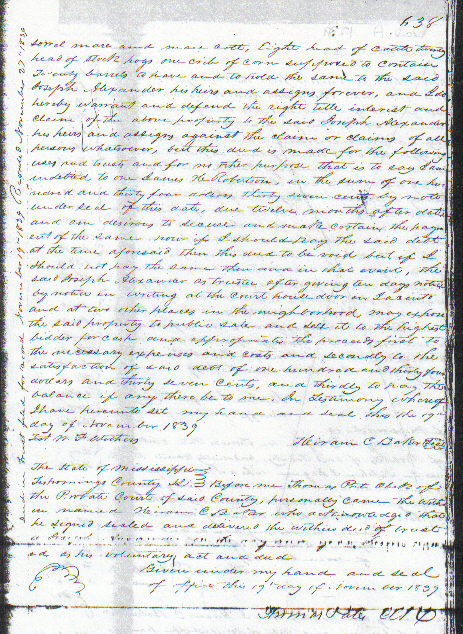 638
sorrel mare and mare colt, Eight head of cattle twenty
head of stock hogs one crib of corn supposed to contain
Twenty barrels to have and to hold the same to the said
Joseph Alexander his heirs and assigns forever, and I do
hereby warrant and defend the right title interest and
claim of the above property to the said Joseph Alexander
his heirs and assigns against the claim or claims of all
persons whatsoever, but this deed is made for the following
uses and trusts and for no other purpose that is to say I am
indebted to one James H. Robertson, in the sum of one hun
dred and thirty four dollars thirty seven cents by note
under seal of this date, due twelve months after date
and am desirous to secure and make certain the paym
ent of the same now if I should pay the said debt
at the time aforesaid then this deed to be void but if I
should not pay the same then and in that event, the
said Joseph Alexander as trustee after giving ten days notice
by notice in writing at the court house door in Jacinto
and at two other places in the neighborhood may expose
the said property to public sale and sell it to the highest
bidder for cash and appropriate the proceeds first to
the necessary expenses and costs and secondly to the
satisfaction of said debt of one hundred and thirty four
dollars and thirty seven cents, and thirdly to pay the
balance if any there be to me. In Testimony whereof
I have hereunto set my hand and seal this the 19th
day of November 1839
Test W. F.
Heiram C Baker Seal
The State of Mississippi
Tishomingo County Sct. Before me Thomas Pate Clerk of
the Probate Court of said County, personally came the with
in named Heiram C Baker who acknowledged that
he signed sealed and delivered the within deed of trust
as his voluntary act and deed
Given under my hand and seal
of office this 19th day of November 1839
Thomas Pate Clk
deed in Trust filed for record November 19th 1839 Recorded November 27 1839